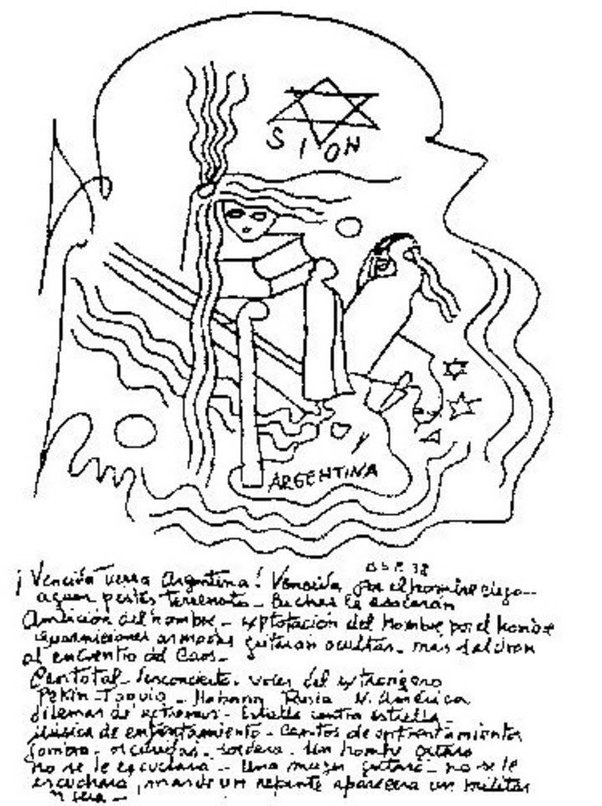 SION
ARGENTINA
B S P. 38
¡Vencida tierra Argentina! Vencida por el hombre ciego-
pestes terremoto- luchas le
Ambición del hombre- explotación del hombre por el hombre
armadas gritarán ocultas- mas saldrán
al encuentro del Caos-
total- desconcierto- voces del extrangero
Pekin- Toquio- Habana Rusia N. América
dilemas de extremos- Estrella contra estrella-
Música de enfrentamiento- Cantos de enfrentamientos
sombra- sordera- Un hombre gritará
no se le escuchará- Una mujer gritará- no se le
escuchará, mas de un repente aparecerá un militar
y será-